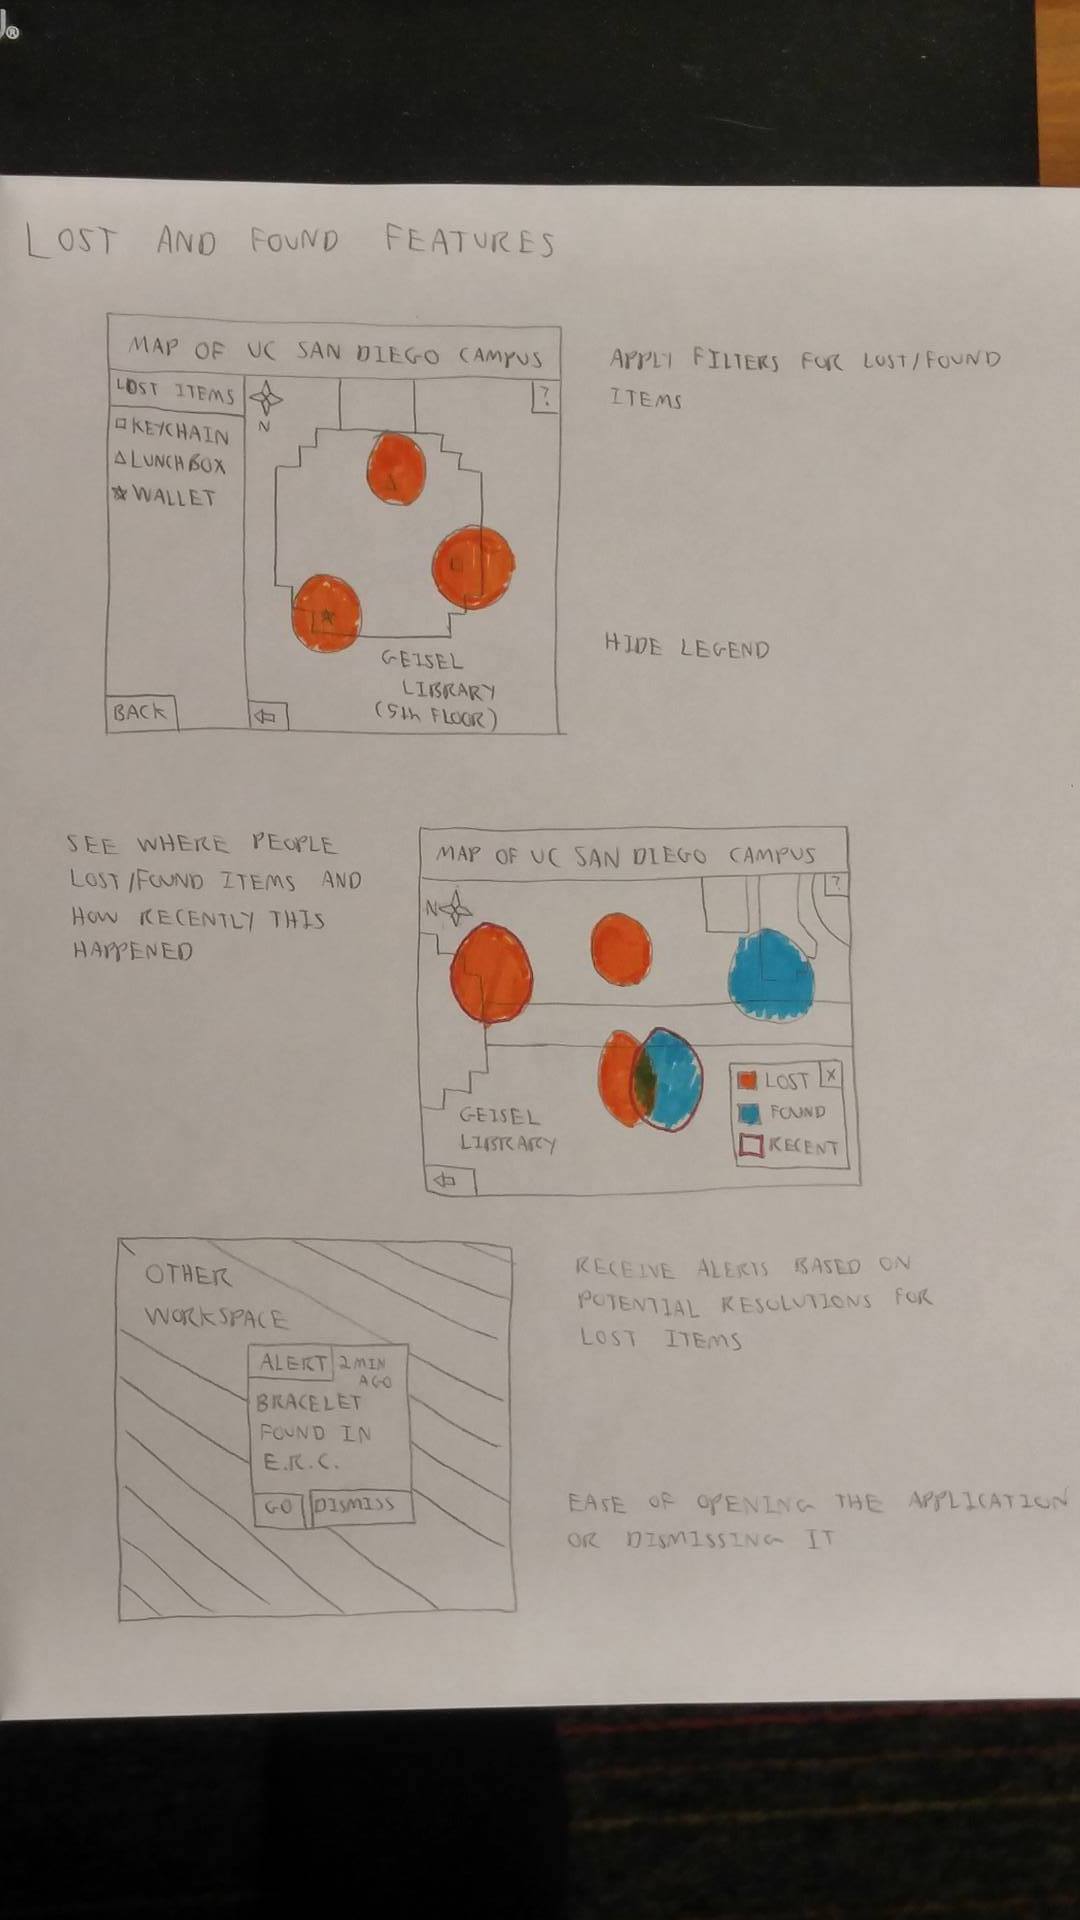 LOST AND FOUND FEATURES
MAP OF UC SAN DIEGO CAMPUS
LOST ITEMS
KEYCHAIN
LUNCHBOX
WALLET
N
?
GEISEL
LIBRARY
(5th FLOOR)
BACK
APPLY FILTERS FOR LOST/FOUND
ITEMS
HIDE LEGEND
SEE WHERE PEOPLE
LOST/FOUND ITEMS AND
HOW RECENTLY THIS
HAPPENED
MAP OF UC SAN DIEGO CAMPUS
N
?
GEISEL
LIBRARY
LOST X
FOUND
RECENT
OTHER
WORKSPACE
ALERT 2 MIN
AGO
BRACELET
FOUND IN
E.R.C.
GO DISMISS
RECEIVE ALERTS BASED ON
POTENTIAL RESOLUTIONS FOR
LOST ITEMS
EASE OF OPENING THE APPLICATION
OR DISMISSING IT